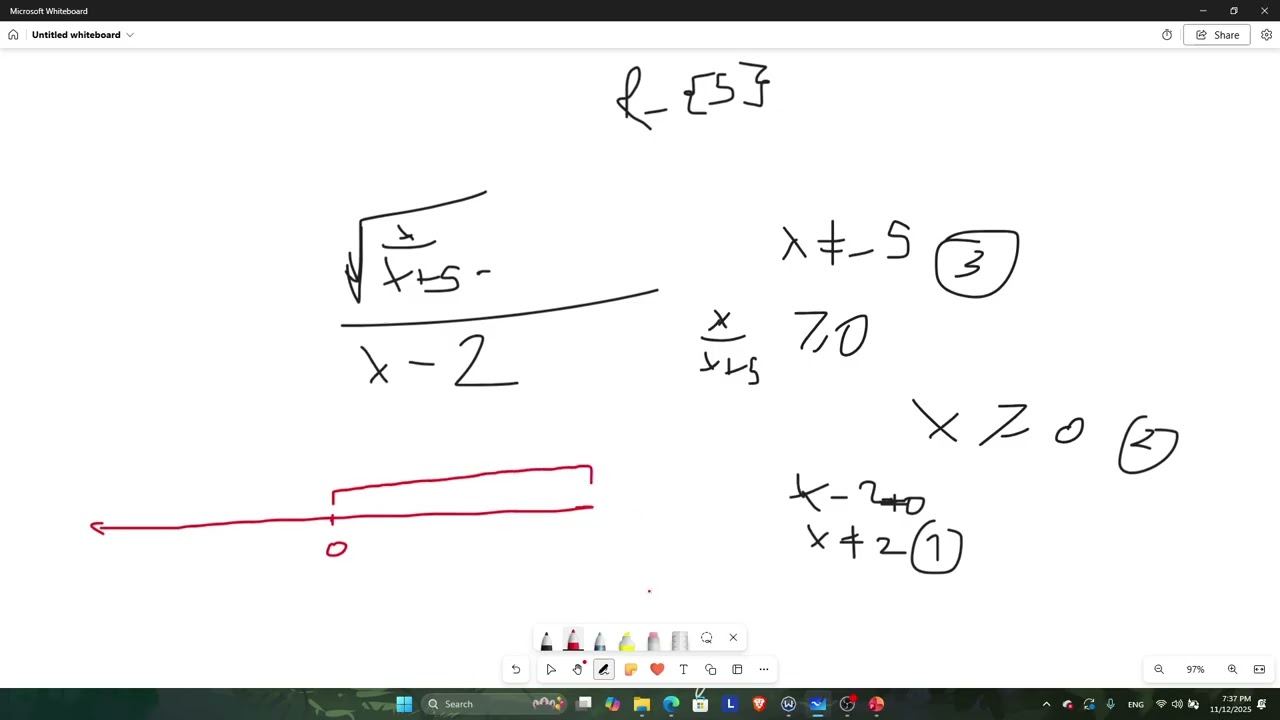 Microsoft Whiteboard
Untitled whiteboard
Share
R - {5}
√(x/(x+5) -
x - 2
x ≠ - 5 3
x/(x+5) ≥ 0
x ≥ 0 2
x - 2 ≠ 0
x ≠ 2 1
0
97%
Search
7:37 PM
11/12/2025